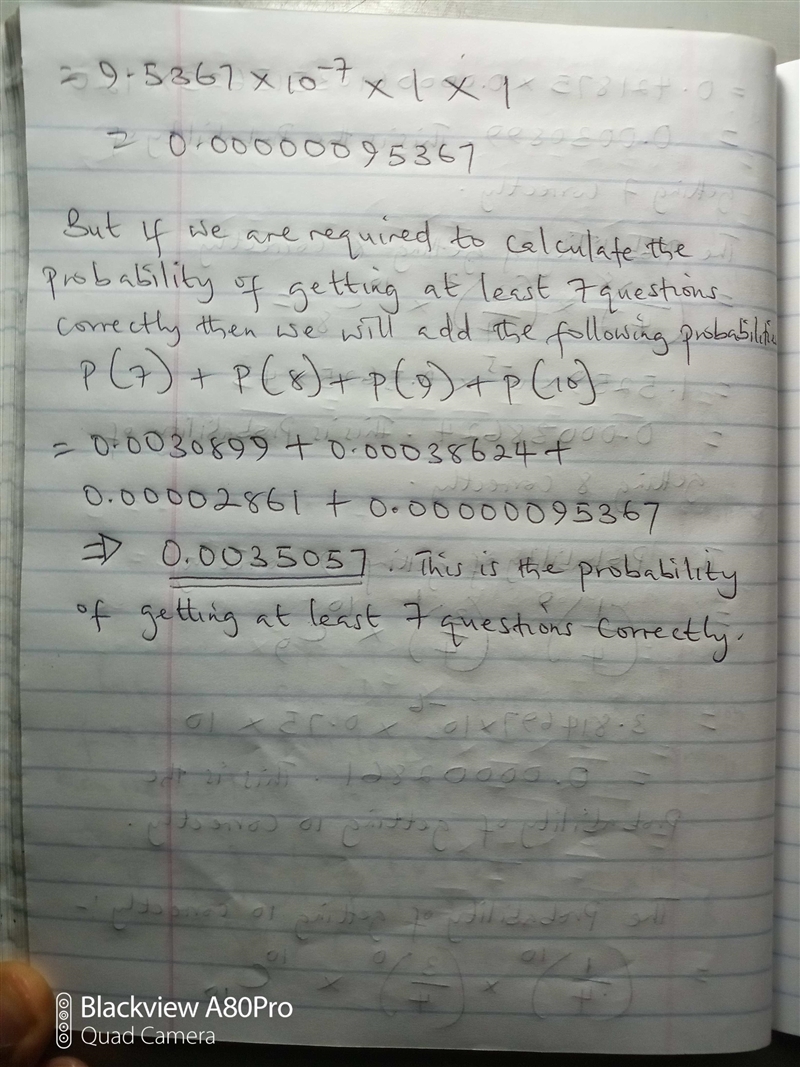 = 9.5367 × 10⁻⁷ × 1 × 1
= 0.00000095367
But if we are required to calculate the
probability of getting at least 7 questions
correctly then we will add the following probabilities
P(7) + P(8) + P(9) + P(10)
= 0.0030899 + 0.00038624 +
0.00002861 + 0.00000095367
⇒ 0.0035057. This is the probability
of getting at least 7 questions correctly.
Blackview A80Pro
Quad Camera